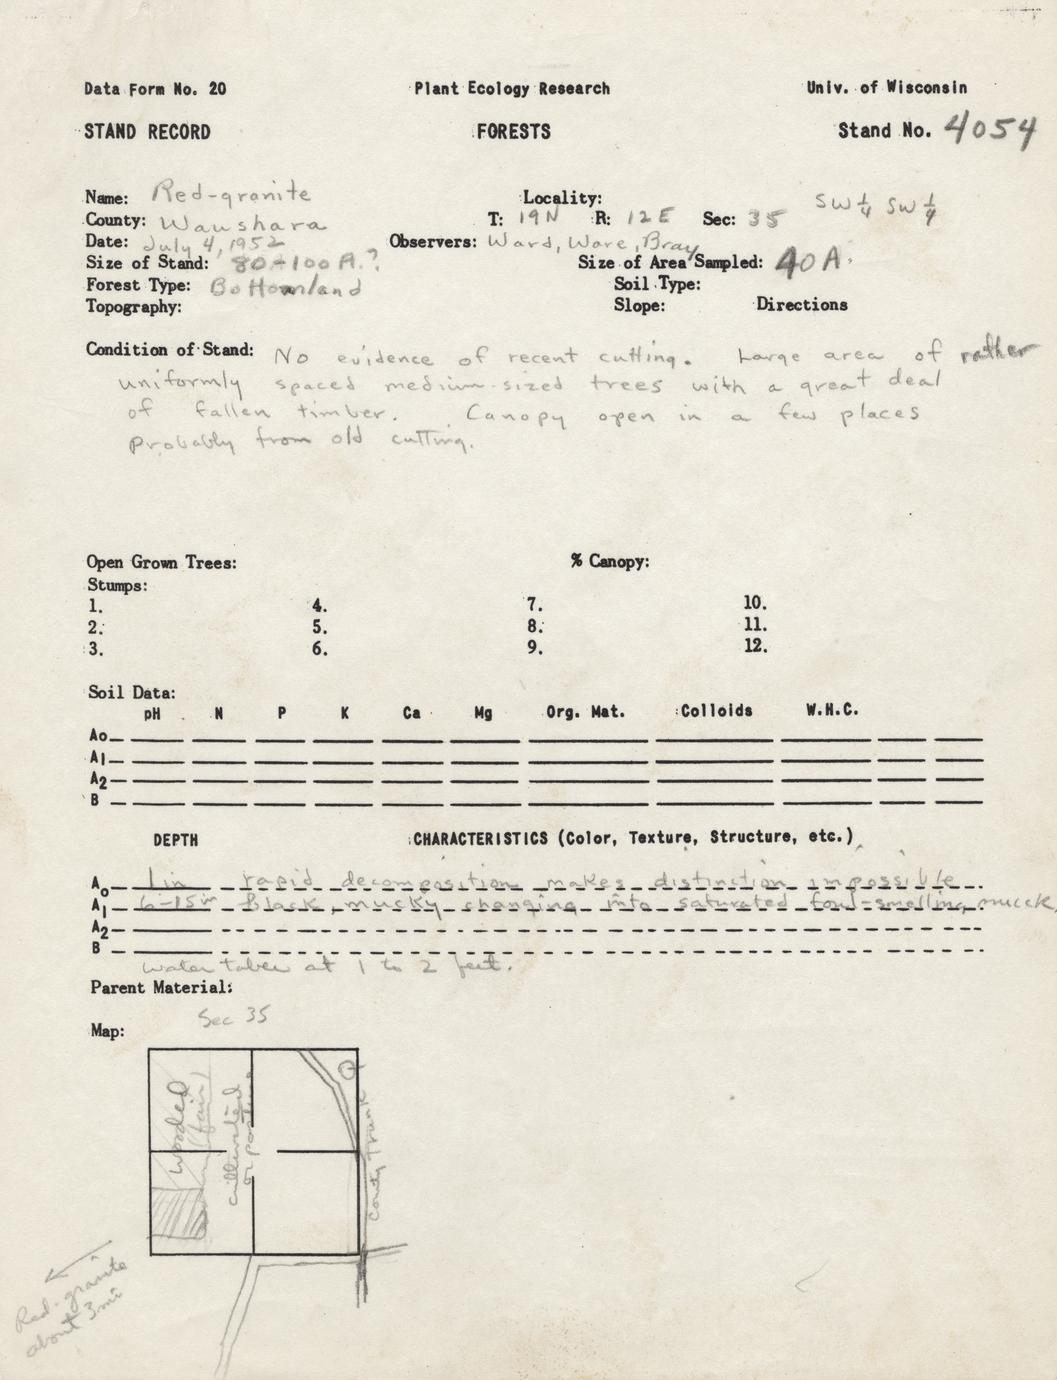 Data Form No. 20 Plant Ecology Research Univ. of Wisconsin
STAND RECORD FORESTS Stand No. 4054
Name: Red-granite Locality: SW 1/4 SW 1/4
County: Waushara T: 19N R: 12E Sec: 35
Date: July 4, 1952 Observers: Ward, Ware, Bray
Size of Stand: 80-100 A.? Size of Area Sampled: 40 A.
Forest Type: Bottomland Soil Type:
Topography: Slope: Directions
Condition of Stand: No evidence of recent cutting. Large area of rather
uniformly spaced medium-sized trees with a great deal
of fallen timber. Canopy open in a few places
probably from old cutting.
Open Grown Trees: % Canopy:
Stumps:
1. 4. 7. 10.
2. 5. 8. 11.
3. 6. 9. 12.
Soil Data:
pH N P K Ca Mg Org. Mat. Colloids W.H.C.
Ao
A1
A2
B
DEPTH CHARACTERISTICS (Color, Texture, Structure, etc.)
Ao 1 in rapid decomposition makes distinction impossible
A1 6-15in black, mucky changing into saturated foul-smelling muck
A2
B
water table at 1 to 2 feet.
Parent Material:
Map: Sec 35
wooded
(fair)
cultivated
or pasture
County Trunk Q
Red-granite
about 3 mi